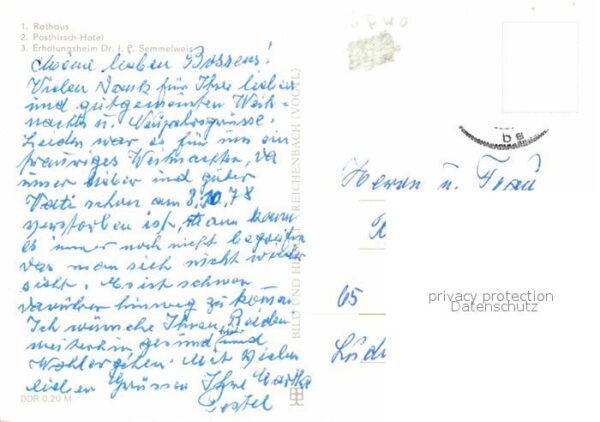 1. Rathaus
2. Posthirsch-Hotel
3. Erholungsheim Dr. J. P. Semmelweis
lieben
Vielen Dank für Ihre lieben
und gutgemeinten Weih-
nachts u. Neujahrsgrüsse.
Leider war es für uns ein
trauriges Weihnachten, da
unser lieber und guter
Vati schon am 8.10.78
verstorben ist, man kann
es immer noch nicht begreifen
das man sich nicht wieder
sieht. Es ist schwer
darüber hinweg zu kommen
Ich wünsche Ihnen Beiden
weiterhin gesund und
Wohlergehen. Mit vielen
lieben Grüssen Ihre
DDR 0,20 M
BILD UND HEIMAT REICHENBACH (VOGTL)
be
Herrn u. Frau
65
privacy protection
Datenschutz